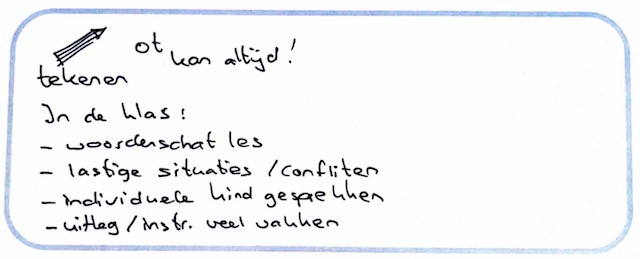 ot kan altijd!
tekenen
In de klas:
- woordenschat les
- lastige situaties / Confliten
- individuele kind gesprekken
- uitleg / instr. veel vakken